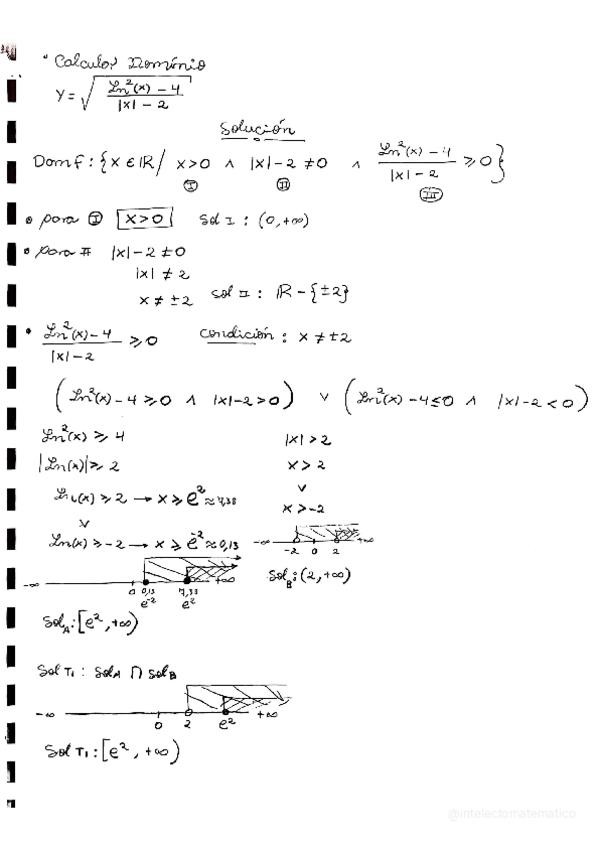 • Calcular Dominio
Y = √((Ln²(x) - 4) / (|x| - 2))
Solución
Dom f : {x ∈ ℝ / x>0 ∧ |x|-2 ≠0 ∧ (Ln²(x) - 4)/(|x| - 2) ≥ 0}
Ⓘ Ⓘ Ⓘ
• para Ⓘ x>0 Sol I : (0,+∞)
• para II |x|-2 ≠ 0
|x| ≠ 2
x ≠ ±2 Sol II : ℝ - {±2}
• (Ln²(x) - 4)/(|x| - 2) ≥ 0 Condición : x ≠ ±2
(Ln²(x) - 4 ≥ 0 ∧ |x|-2 > 0) ∨ (Ln²(x) - 4 ≤ 0 ∧ |x|-2 < 0)
Ln²(x) ≥ 4 |x| > 2
|Ln(x)| ≥ 2 x > 2
Ln(x) ≥ 2 → x ≥ e² ≈ 7,38 ∨
∨ x > -2
Ln(x) ≥ -2 → x ≥ e⁻² ≈ 0,13 -∞ -2 0 2 +∞
-∞ 0 0,13 7,38 +∞ Sol_B : (2,+∞)
e⁻² e²
Sol_A : [e²,+∞)
Sol T₁ : Sol_A ∩ Sol_B
-∞ 0 2 e² +∞
Sol T₁ : [e², +∞)
@intelectomatematico